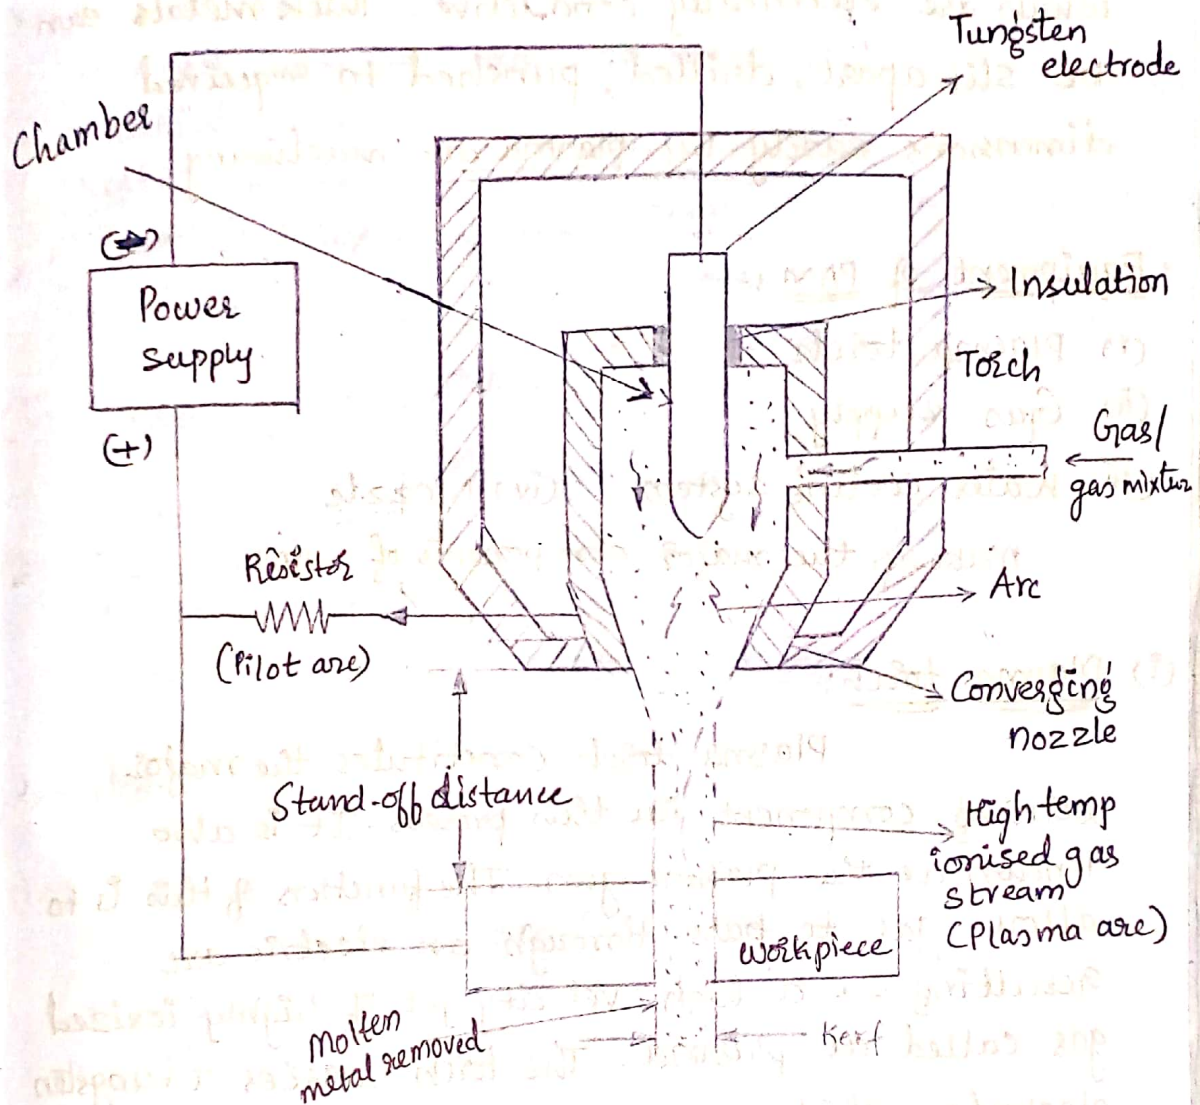 Tungsten
electrode
Chamber
(-)
Power
supply
(+)
Insulation
Torch
Gas/
gas mixture
Resistor
(Pilot arc)
Arc
Converging
nozzle
Stand-off distance
High temp
ionised gas
stream
(Plasma arc)
workpiece
Molten
metal removed
Kerf